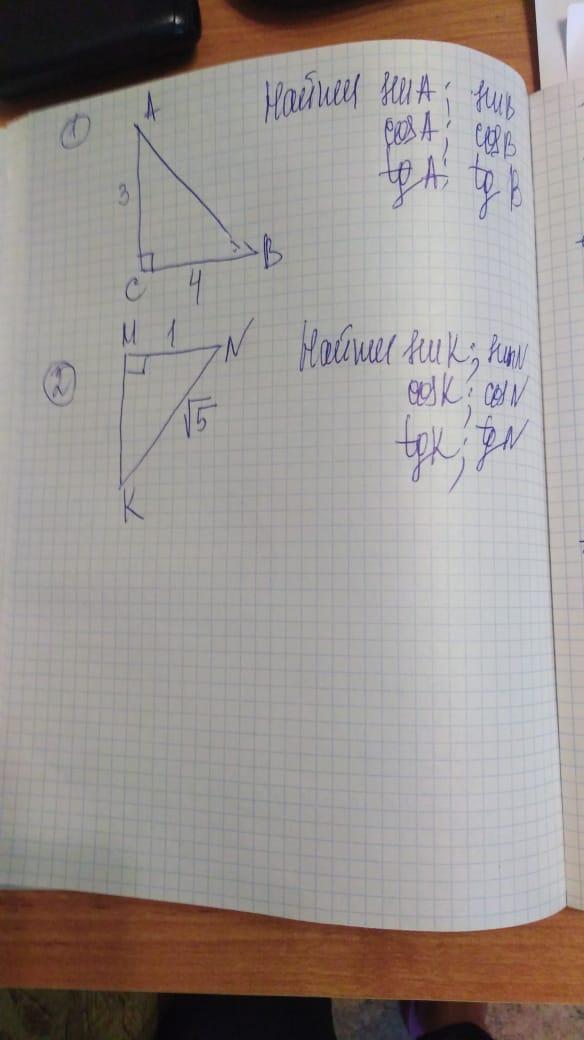 ① A Найти sin A; sin B
cos A; cos B
3 tg A; tg B
B
C 4
M 1 N Найти sin K; sin N
② cos K; cos N
√5 tg K; tg N
K